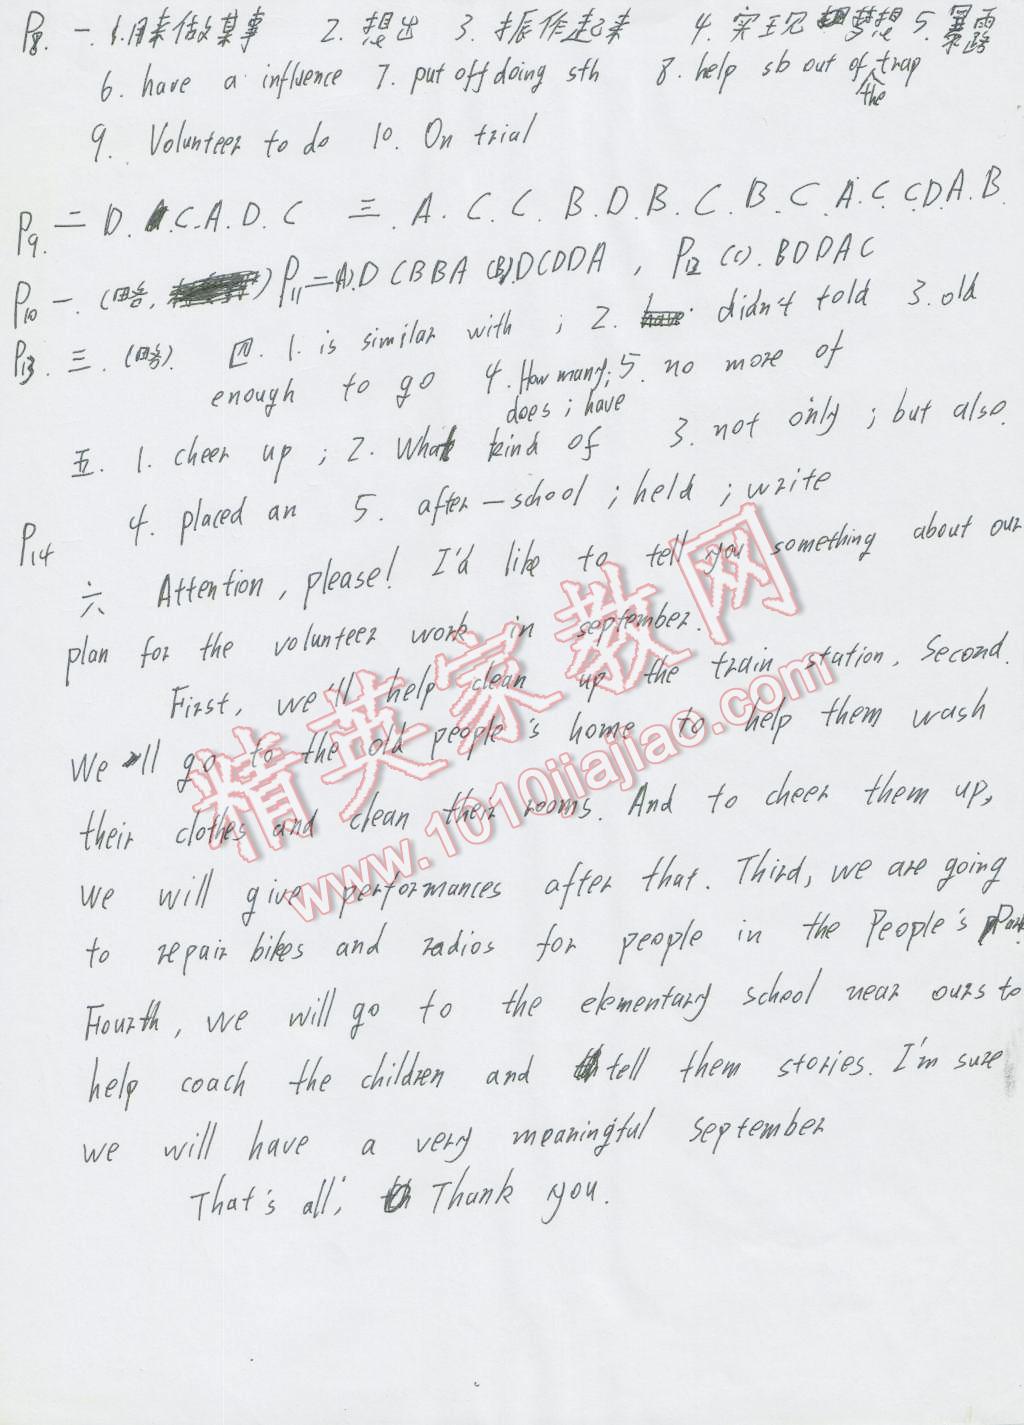 P8. 一. 1.用来做某事 2. 想出 3. 振作起来 4. 实现梦想 5. 暴露
6. have a influence 7. put off doing sth 8. help sb out of the trap
9. Volunteer to do 10. On trial
P9. 二 D. C.A.D.C 三. A.C.C.B.D.B.C.B.C.A.C.CDA.B.
P10 一. (略, ) P11 二(A).D CBBA (B).DCDDA , P12 (C). BDDAC
P13. 三. (略). 四. 1. is similar with ; 2. didn't told 3. old
enough to go 4. How many; 5. no more of
does ; have
五. 1. cheer up ; 2. What kind of 3. not only ; but also.
4. placed an 5. after-school ; held ; write
P14
六 Attention, please! I'd like to tell you something about our
plan for the volunteer work in september.
First, we'll help clean up the train station. Second.
We'll go to the old people's home to help them wash
their clothes and clean their rooms. And to cheer them up,
we will give performances after that. Third, we are going
to repair bikes and radios for people in the People's Park.
Fourth, we will go to the elementary school near ours to
help coach the children and tell them stories. I'm sure
we will have a very meaningful september
That's all, Thank you.
精英家教网
www.1010jiajiao.com